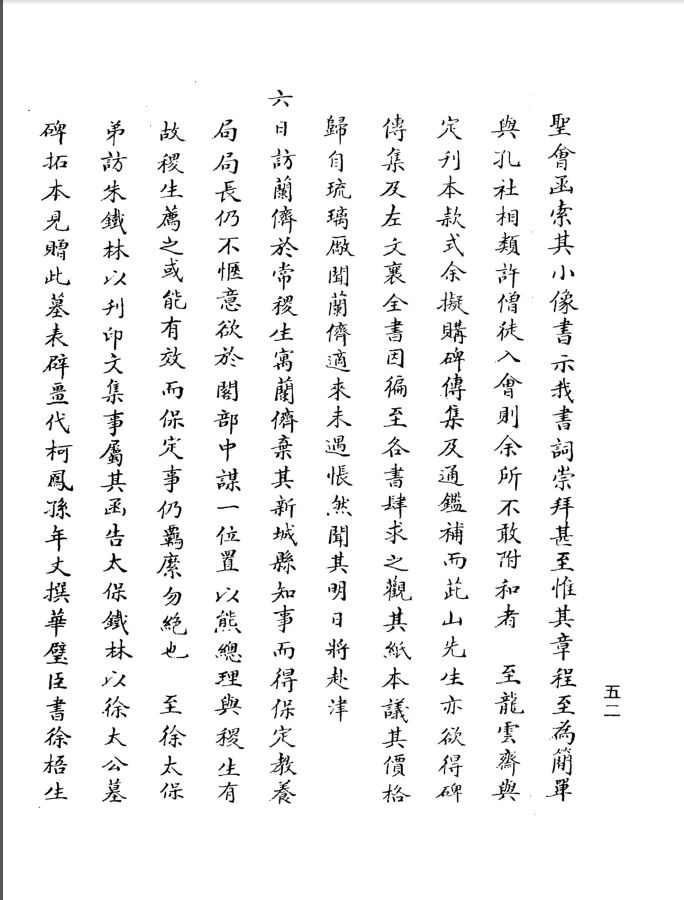 聖會函索其小像書示我書詞崇拜甚至惟其章程至為簡單
與孔社相類許僧徒入會則余所不敢附和者　至龍雲齋與
定刊本款式余擬購碑傳集及通鑑補而茈山先生亦欲得碑
傳集及左文襄全書因徧至各書肆求之觀其紙本議其價格
歸自琉璃厰聞蘭儕適來未遇悵然聞其明日將赴津
六日訪蘭儕於常稷生寓蘭儕棄其新城縣知事而得保定教養
局局長仍不愜意欲於閣部中謀一位置以熊總理與稷生有
故稷生薦之或能有效而保定事仍羈縻勿絕也　至徐太保
弟訪朱鐵林以刊印文集事屬其函告太保鐵林以徐太公墓
碑拓本見贈此墓表辟畺代柯鳳孫年丈撰華璧臣書徐梧生
五二